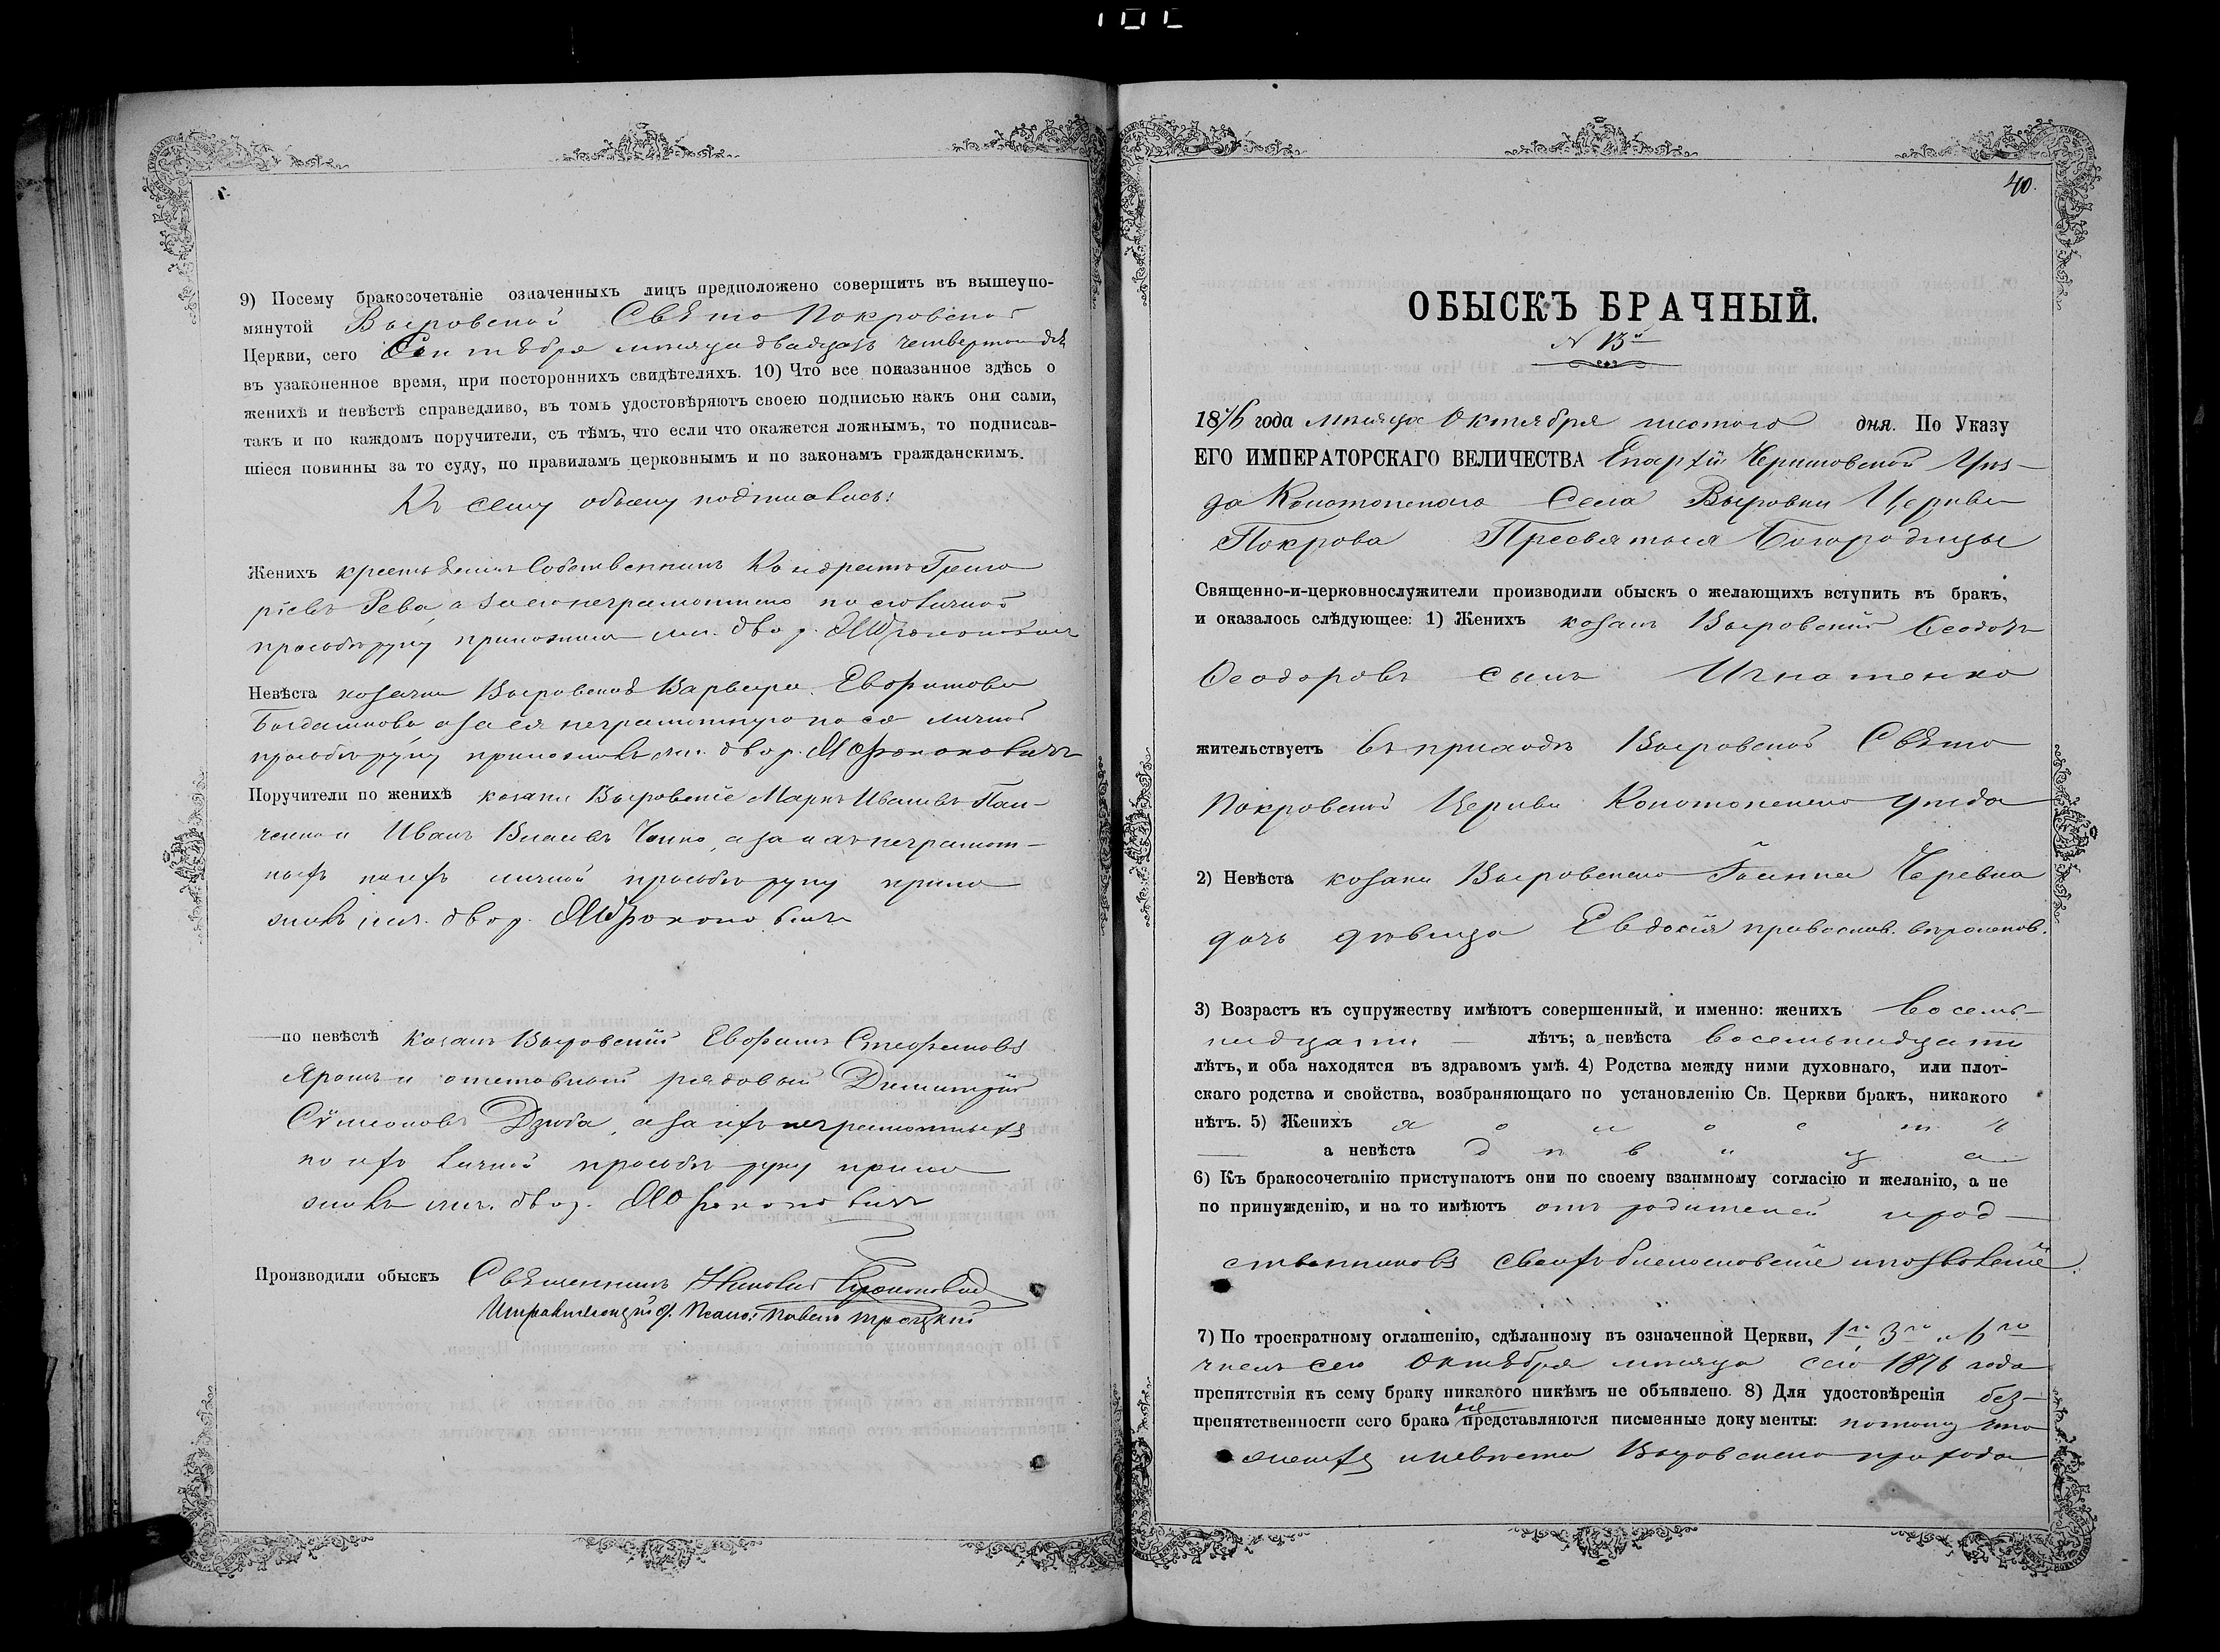 9) Посему бракосочетаніе означенныхъ лицъ предположено совершить въ вышеупо-
мянутой Выровской Свято Покровской
Церкви, сего Сентября мѣсяца двадцать четвертого
въ узаконенное время, при постороннихъ свидѣтеляхъ. 10) Что все показанное здѣсь о
женихѣ и невѣстѣ справедливо, въ томъ удостовѣряютъ своею подписью какъ они сами,
такъ и по каждомъ поручители, съ тѣмъ, что если что окажется ложнымъ, то подписав-
шіеся повинны за то суду, по правиламъ церковнымъ и по законамъ гражданскимъ.
Къ сему обыску подписались:
Женихъ крестьянинъ Собственникъ Кондратъ Григо
ріевъ Рева, а за его неграмотного по его личной
просьбѣ руку приложилъ двор.
Невѣста козачка Выровская Варвара Евфимова
Богданкова, а за ея неграмотную по ея личной
просьбѣ руку приложилъ двор.
Поручители по женихѣ козаки Выровскіе Маркъ Ивановъ Пан-
ченко и Иванъ а за ихъ неграмот-
ныхъ по ихъ личной просьбѣ руку прило
жилъ двор.
по невѣстѣ Козакъ Выровскій Евфимъ Стефановъ
Ярошъ и отставной рядовый Димитрій
Сѵмеоновъ Дзюба, а за ихъ неграмотныхъ
по ихъ личной просьбѣ руку прило
жилъ двор.
Производили обыскъ Священникъ
Псалом: Павелъ Троцкій
40.
ОБЫСКЪ БРАЧНЫЙ.
N 13й
1876 года мѣсяца Октября шостого дня. По Указу
ЕГО ИМПЕРАТОРСКАГО ВЕЛИЧЕСТВА Епархіи Черниговской Уѣз-
да Конотопского Села Выровки Церкви
Покрова Пресвятыя Богородицы
Священно-и-церковнослужители производили обыскъ о желающихъ вступить въ бракъ,
и оказалось слѣдующее: 1) Женихъ козакъ Выровскій Ѳеодоръ
Ѳеодоровъ сынъ Игнатенко
жительствуетъ въ приходѣ Выровской Свято
Покровской Церкви Конотопского уѣзда
2) Невѣста козака Выровского Іоанна Черевка
дочь дѣвица Евдокія православ. вѣроисповѣд.
3) Возрастъ къ супружеству имѣютъ совершенный, и именно: женихъ восемь
надцати лѣтъ; а невѣста восемьнадцати
лѣтъ, и оба находятся въ здравомъ умѣ. 4) Родства между ними духовнаго, или плот-
скаго родства и свойства, возбраняющаго по установленію Св. Церкви бракъ, никакого
нѣтъ. 5) Женихъ холостъ
а невѣста дѣвица
6) Къ бракосочетанію приступаютъ они по своему взаимному согласію и желанію, а не
по принужденію, и на то имѣютъ отъ родителей и род-
ственниковъ своихъ благословеніе и позволеніе.
7) По троекратному оглашенію, сдѣланному въ означенной Церкви, 1го, 3го и 6го
числъ сего Октября мѣсяца сего 1876 года
препятствія къ сему браку никакого никѣмъ не объявлено. 8) Для удостовѣренія без-
препятственности сего брака не представляются писменные документы: потому что
женихъ и невѣста Выровского прихода